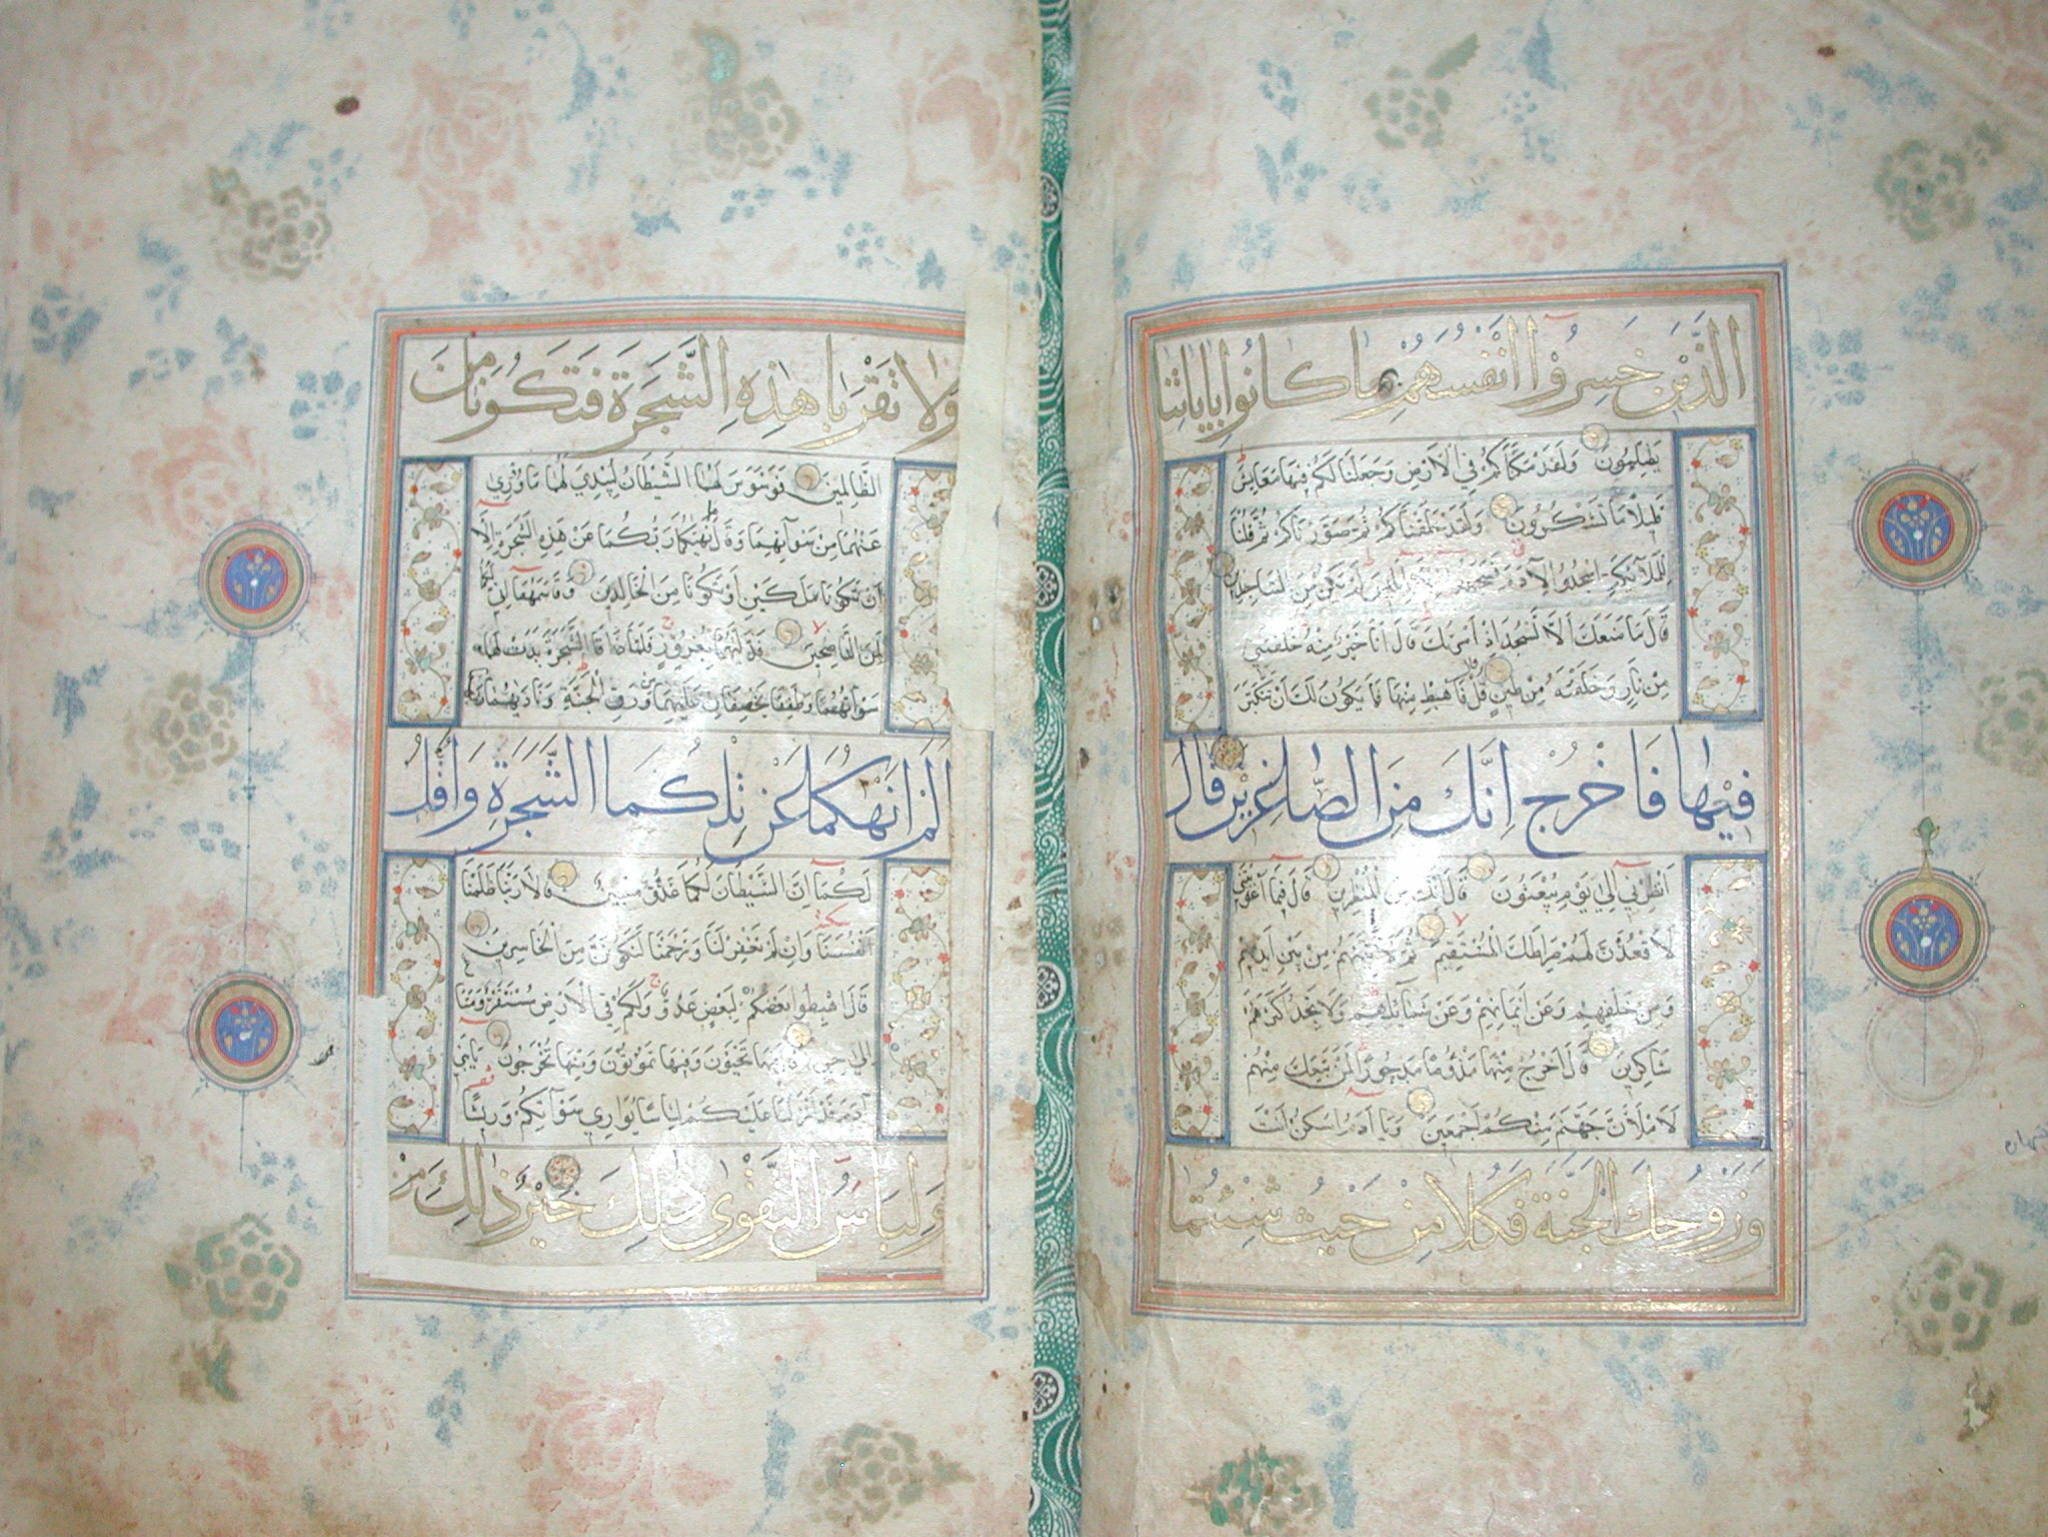 الَّذِينَ خَسِرُوا اَنْفُسَهُمْ بِمَا كَانُوا بِاٰيَاتِنَا
يَظْلِمُونَ وَلَقَدْ مَكَّنَّاكُمْ فِي الْاَرْضِ وَجَعَلْنَا لَكُمْ فِيهَا مَعَايِشَ
قَلِيلاً مَا تَشْكُرُونَ وَلَقَدْ خَلَقْنَاكُمْ ثُمَّ صَوَّرْنَاكُمْ ثُمَّ قُلْنَا
لِلْمَلَآئِكَةِ اسْجُدُوا لِاٰدَمَ فَسَجَدُوا اِلَّا اِبْلِيسَ لَمْ يَكُنْ مِنَ السَّاجِدِينَ
قَالَ مَا مَنَعَكَ اَلَّا تَسْجُدَ اِذْ اَمَرْتُكَ قَالَ اَنَا خَيْرٌ مِنْهُ خَلَقْتَنِي
مِنْ نَارٍ وَخَلَقْتَهُ مِنْ طِينٍ قَالَ فَاهْبِطْ مِنْهَا فَمَا يَكُونُ لَكَ اَنْ تَتَكَبَّرَ
فِيهَا فَاخْرُجْ اِنَّكَ مِنَ الصَّاغِرِينَ قَالَ
اَنْظِرْنِي اِلٰى يَوْمِ يُبْعَثُونَ قَالَ اِنَّكَ مِنَ الْمُنْظَرِينَ قَالَ فَبِمَا اَغْوَيْتَنِي
لَاَقْعُدَنَّ لَهُمْ صِرَاطَكَ الْمُسْتَقِيمَ ثُمَّ لَاٰتِيَنَّهُمْ مِنْ بَيْنِ اَيْدِيهِمْ
وَمِنْ خَلْفِهِمْ وَعَنْ اَيْمَانِهِمْ وَعَنْ شَمَآئِلِهِمْ وَلَا تَجِدُ اَكْثَرَهُمْ
شَاكِرِينَ قَالَ اخْرُجْ مِنْهَا مَذْؤُمًا مَدْحُورًا لَمَنْ تَبِعَكَ مِنْهُمْ
لَاَمْلَاَنَّ جَهَنَّمَ مِنْكُمْ اَجْمَعِينَ وَيَا اٰدَمُ اسْكُنْ اَنْتَ
وَزَوْجُكَ الْجَنَّةَ فَكُلَا مِنْ حَيْثُ شِئْتُمَا
وَلَا تَقْرَبَا هٰذِهِ الشَّجَرَةَ فَتَكُونَا مِنَ
الظَّالِمِينَ فَوَسْوَسَ لَهُمَا الشَّيْطَانُ لِيُبْدِيَ لَهُمَا مَا وُرِيَ
عَنْهُمَا مِنْ سَوْاٰتِهِمَا وَقَالَ مَا نَهٰيكُمَا رَبُّكُمَا عَنْ هٰذِهِ الشَّجَرَةِ اِلَّا
اَنْ تَكُونَا مَلَكَيْنِ اَوْ تَكُونَا مِنَ الْخَالِدِينَ وَقَاسَمَهُمَا اِنِّي لَكُمَا
لَمِنَ النَّاصِحِينَ فَدَلّٰيهُمَا بِغُرُورٍ فَلَمَّا ذَاقَا الشَّجَرَةَ بَدَتْ لَهُمَا
سَوْاٰتُهُمَا وَطَفِقَا يَخْصِفَانِ عَلَيْهِمَا مِنْ وَرَقِ الْجَنَّةِ وَنَادٰيهُمَا رَبُّهُمَا
اَلَمْ اَنْهَكُمَا عَنْ تِلْكُمَا الشَّجَرَةِ وَاَقُلْ
لَكُمَا اِنَّ الشَّيْطَانَ لَكُمَا عَدُوٌّ مُبِينٌ قَالَا رَبَّنَا ظَلَمْنَا
اَنْفُسَنَا وَاِنْ لَمْ تَغْفِرْ لَنَا وَتَرْحَمْنَا لَنَكُونَنَّ مِنَ الْخَاسِرِينَ
قَالَ اهْبِطُوا بَعْضُكُمْ لِبَعْضٍ عَدُوٌّ وَلَكُمْ فِي الْاَرْضِ مُسْتَقَرٌّ وَمَتَاعٌ
اِلٰى حِينٍ قَالَ فِيهَا تَحْيَوْنَ وَفِيهَا تَمُوتُونَ وَمِنْهَا تُخْرَجُونَ يَا بَنِي
اٰدَمَ قَدْ اَنْزَلْنَا عَلَيْكُمْ لِبَاسًا يُوَارِي سَوْاٰتِكُمْ وَرِيشًا
وَلِبَاسُ التَّقْوٰى ذٰلِكَ خَيْرٌ ذٰلِكَ مِنْ